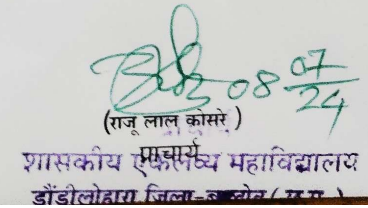 08 07/24
(राजू लाल कोसरे)
प्राचार्य
शासकीय एकलव्य महाविद्यालय
डौंडीलोहारा जिला-